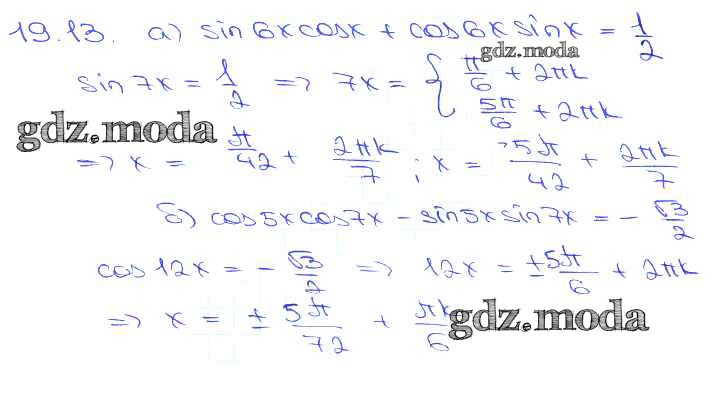 19.13. а) sin6xcosx + cos6xsinx = 1/2
gdz.moda
sin7x = 1/2 => 7x = { π/6 + 2πk
5π/6 + 2πk
gdz.moda
=> x = π/42 + 2πk/7 ; x = 5π/42 + 2πk/7
б) cos5xcos7x - sin5xsin7x = - √3/2
cos12x = - √3/2 => 12x = ±5π/6 + 2πk
=> x = ± 5π/72 + πk/6
gdz.moda